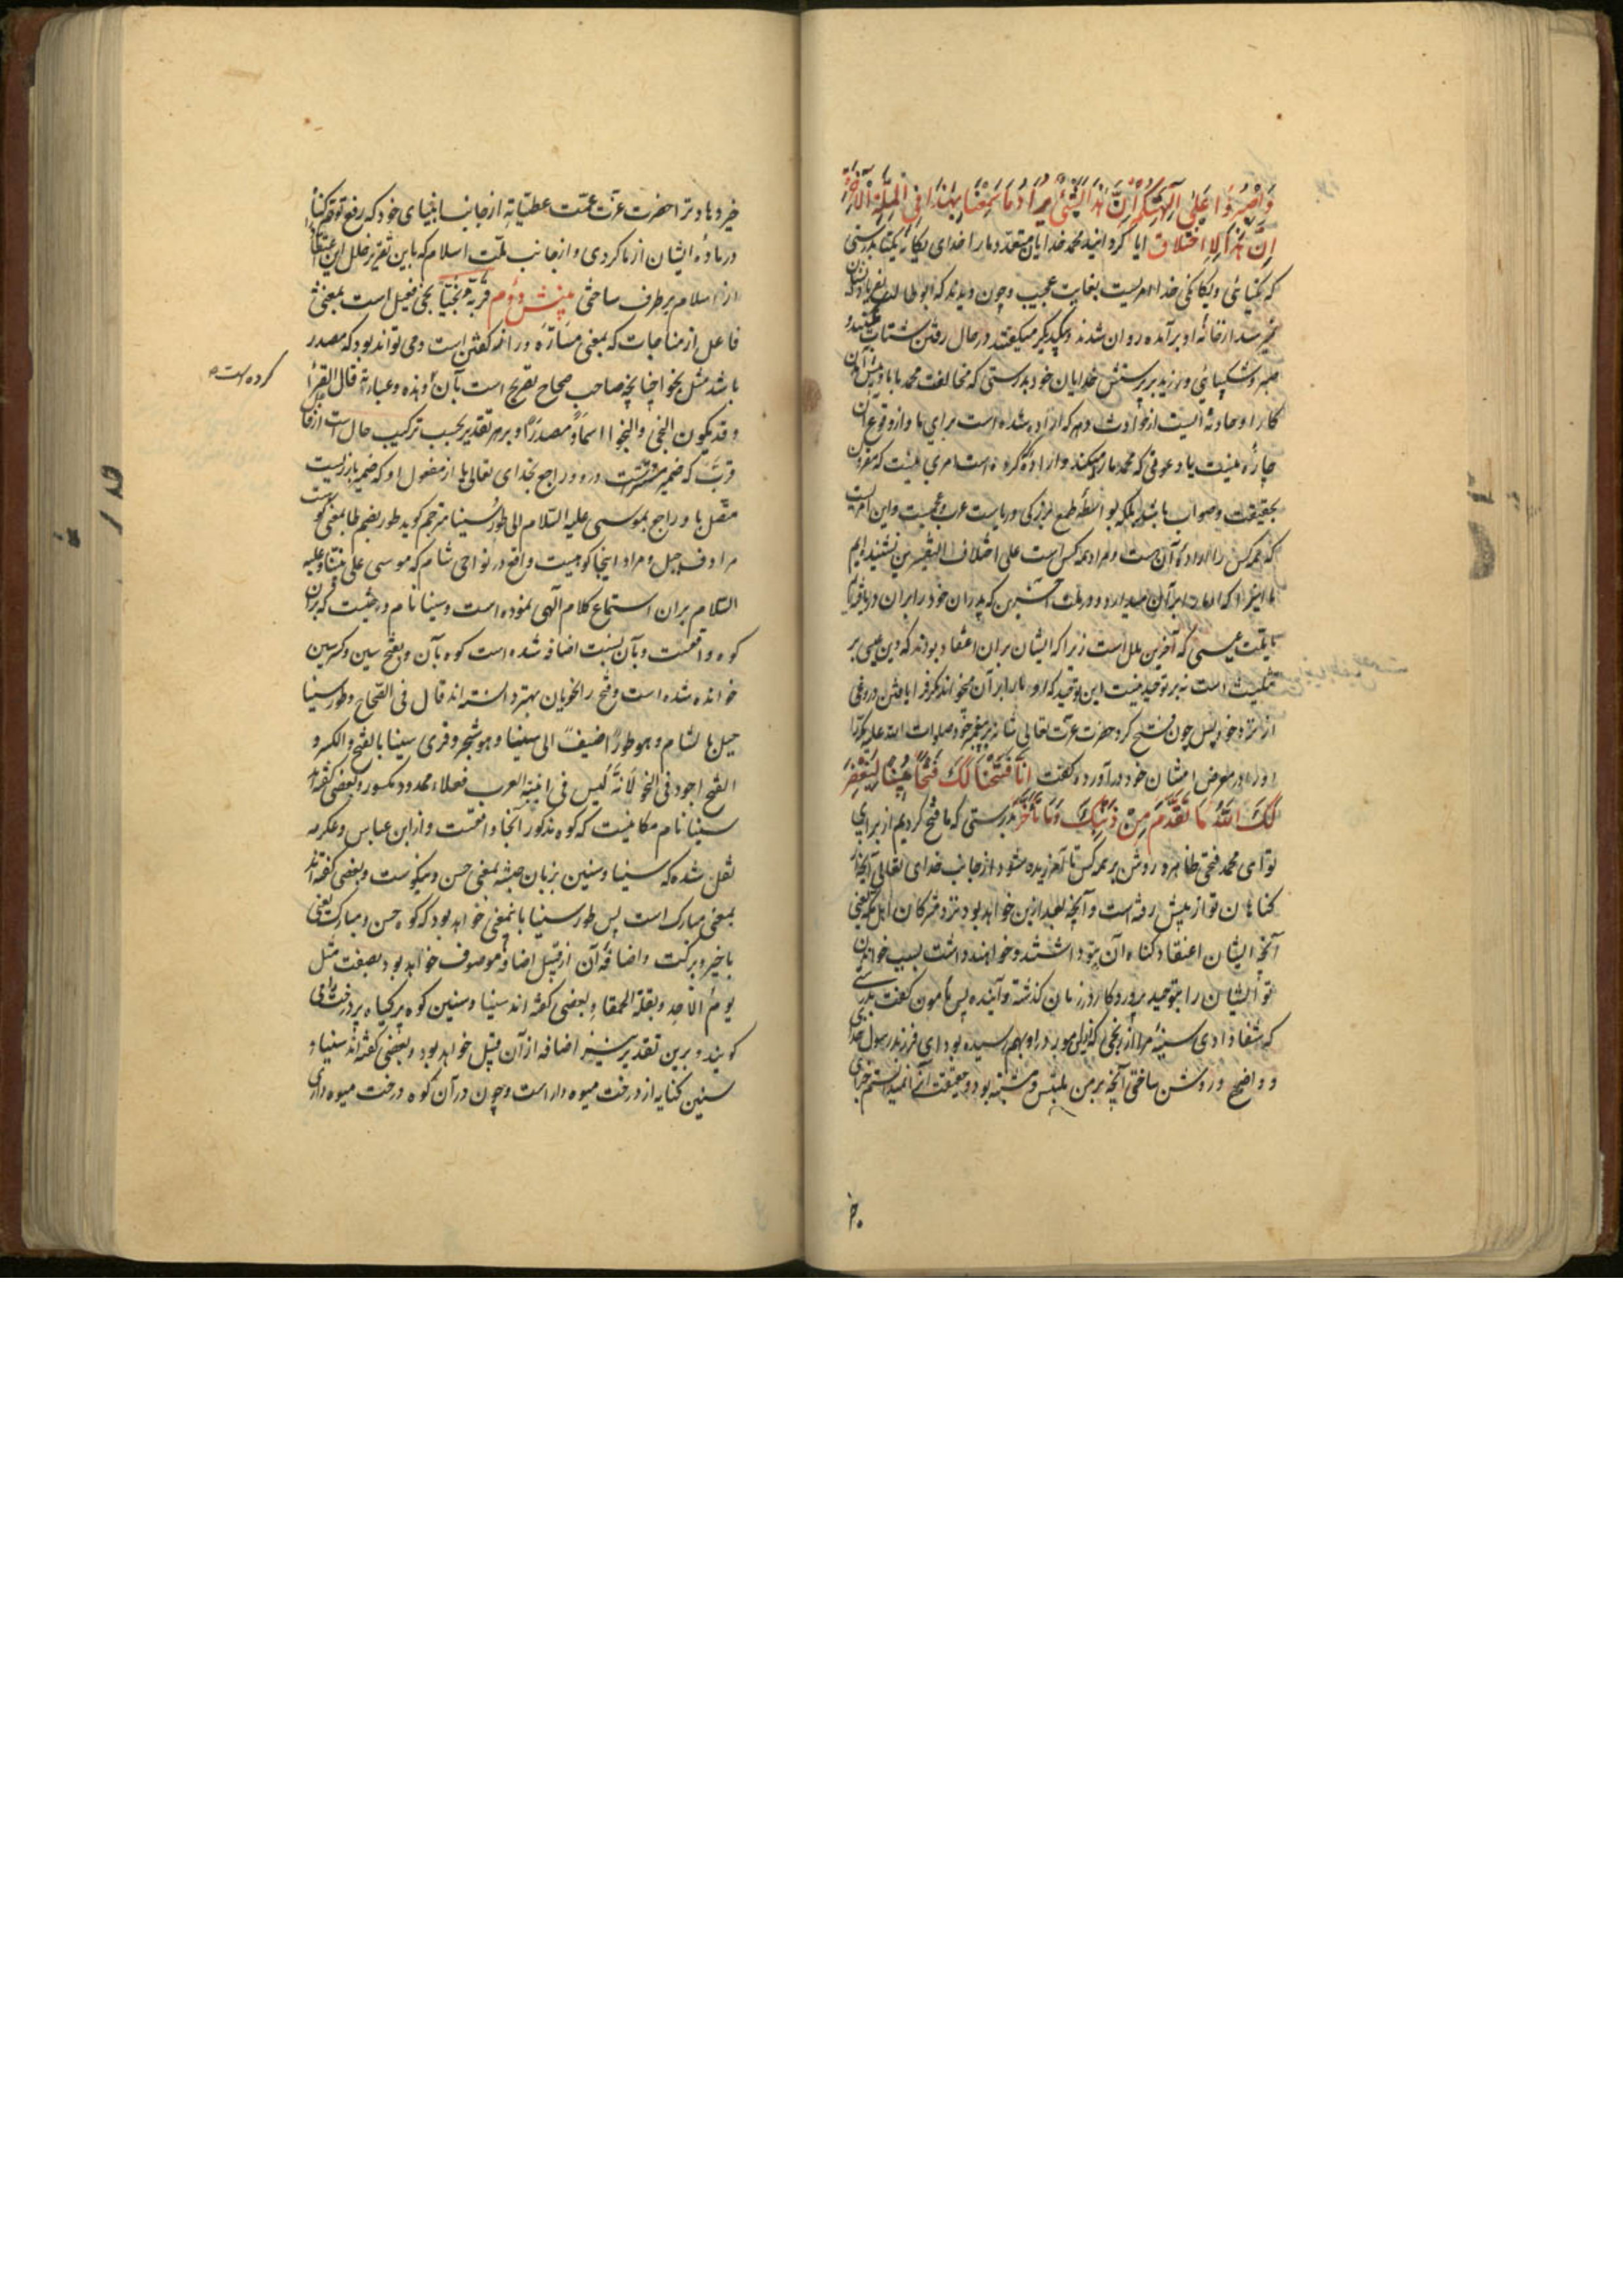 وَاصْبِرُوا عَلَىٰ آلِهَتِكُمْ إِنَّ هَذَا لَشَيْءٌ يُرَادُ مَا سَمِعْنَا بِهَذَا فِي الْمِلَّةِ الْآخِرَةِ
إِنْ هَذَا إِلَّا اخْتِلَاقٌ ایا کردانید محمد خدایان متعدد مارا خدای یکانه یکتا بدرستی
که یکتایی و یکانکی خدا امریست بغایت عجیب و چون دیدند که ابو طالب
از خانه او برآمده روان شدند و بیکدیکر میکفتند در حال رفتن شتاب
صبر و شکیبایی ورزید بر پرستش خدایان خود بدرستی که مخالفت محمد با ما
کار او حادثه ایست از حوادث دهر که اراده شده است برای ما و از وقوع آن
چاره نیست یا دعوئی که محمد مارا میکند و اراده کرده است امری نیست که مقرون
بحقیقت و صواب باشد بلکه بواسطه طمع بزرکی و ریاست عرب و عجم است و این امریست
که همه کس را اراده آن هست و مراد همه کس است علی اختلاف التفسیرین نشنیده‌ایم
ما اینرا که در ملت آخرین که پدران خود را بران دریافته‌ایم
یا ملت عیسی که آخرین ملل است زیرا که ایشان بران اعتقاد بودند که دین عیسی بر
تثلیث است نه بر توحید نیست این توحید که او مارا بر آن میخواند مکر افرا بافتن دروغی
از نزد خود پس چون فتح کرد حضرت عزت تعالی شانه بر پیغمبر خود صلوات الله علیه مکه را
در معرض امتنان خود درآورد و کفت إِنَّا فَتَحْنَا لَكَ فَتْحًا مُبِينًا لِيَغْفِرَ
لَكَ اللَّهُ مَا تَقَدَّمَ مِنْ ذَنْبِكَ وَمَا تَأَخَّرَ بدرستی که ما فتح کردیم از برای
تو ای محمد فتحی ظاهر و روشن بر همه کس تا آمرزیده شود از جانب خدای تعالی آنچه از
کناهان تو از پیش رفته است و آنچه بعد ازین خواهد بود نزد مشرکان اهل مکه یعنی
آنچه ایشان اعتقاد کناه آن بتو داشتند و خواهند داشت بسبب خواندن
تو ایشان را بتوحید پروردکار در زمان کذشته و آینده پس مامون کفت بدرستی
که شفا دادی سینه مرا از رنجی که از این موبد در او بهم رسیده بود ای فرزند رسول خدای
و واضح و روشن ساختی آنچه بر من ملتبس و مشتبه بود و حقیقت آنرا نمیدانستم جزای
خیر
خیر دهاد ترا حضرت عزت عمّت عطیّاته از جانب انبیای خود که رفع توهم کناه
در ماده ایشان از ما کردی و از جانب ملت اسلام که باین تقریر خلل این اعتقاد را
از اسلام برطرف ساختی منش دوم قَرَّبَهُ نَجِيًّا نجی فعیل است بمعنی
فاعل از مناجات که بمعنی مسارّه و راز کفتن است و می تواند بود که مصدر
باشد مثل نجوا چنانچه صاحب صحاح تصریح است بآن و هذه عبارة قال الفرّاء
کرده است
و قد یکون النجی و النجوا اسمًا و مصدرًا و بر هر تقدیر بحسب ترکیب حال است از فاعل
قرّب که ضمیر مستتر است درو و راجع بخدای تعالی یا از مفعول او که ضمیر بارزیست
متصل باو راجع بموسی علیه السلام الی طور سینا مترجم کوید طور بضم طا بمعنی کوه است
مرادف جبل و مراد اینجا کوهیست واقع در نواحی شام که موسی علی نبینا و علیه
السلام بران استماع کلام الهی نموده است و سینا نام درختیست که بران
کوه واقعست و بآن نسبت اضافه شده است کوه بآن و بفتح سین و کسر سین
خوانده شده است و فتح را نحویان بهتر دانسته اند قال فی الصحاح و طور سینا
جبل بالشام و هو طور اضیف الی سینا و هو شجر و قری سینا بالفتح و الکسر و
الفتح اجود فی النحو لانه لیس فی ابنیة العرب فعلاء ممدود مکسور و بعضی کفته‌اند
سینا نام مکانیست که کوه مذکور آنجا واقعست و از ابن عباس و عکرمه
نقل شده که سینا و سنین بزبان حبشه بمعنی حسن و نیکوست و بعضی کفته‌اند
بمعنی مبارک است پس طور سینا باینمعنی خواهد بود که کوه حسن و مبارک یعنی
با خیر و برکت و اضافه آن از قبیل اضافه موصوف خواهد بود بصفت مثل
یوم الاحد و بقلة الحمقا و بعضی کفته اند سینا و سنین کوه پرکیاه پر درخت را می
کویند و برین تقدیر نیز اضافه از آن قبیل خواهد بود و بعضی کفته‌اند سینا و
سنین کنایه از درخت میوه دار است و چون در آن کوه درخت میوه داری